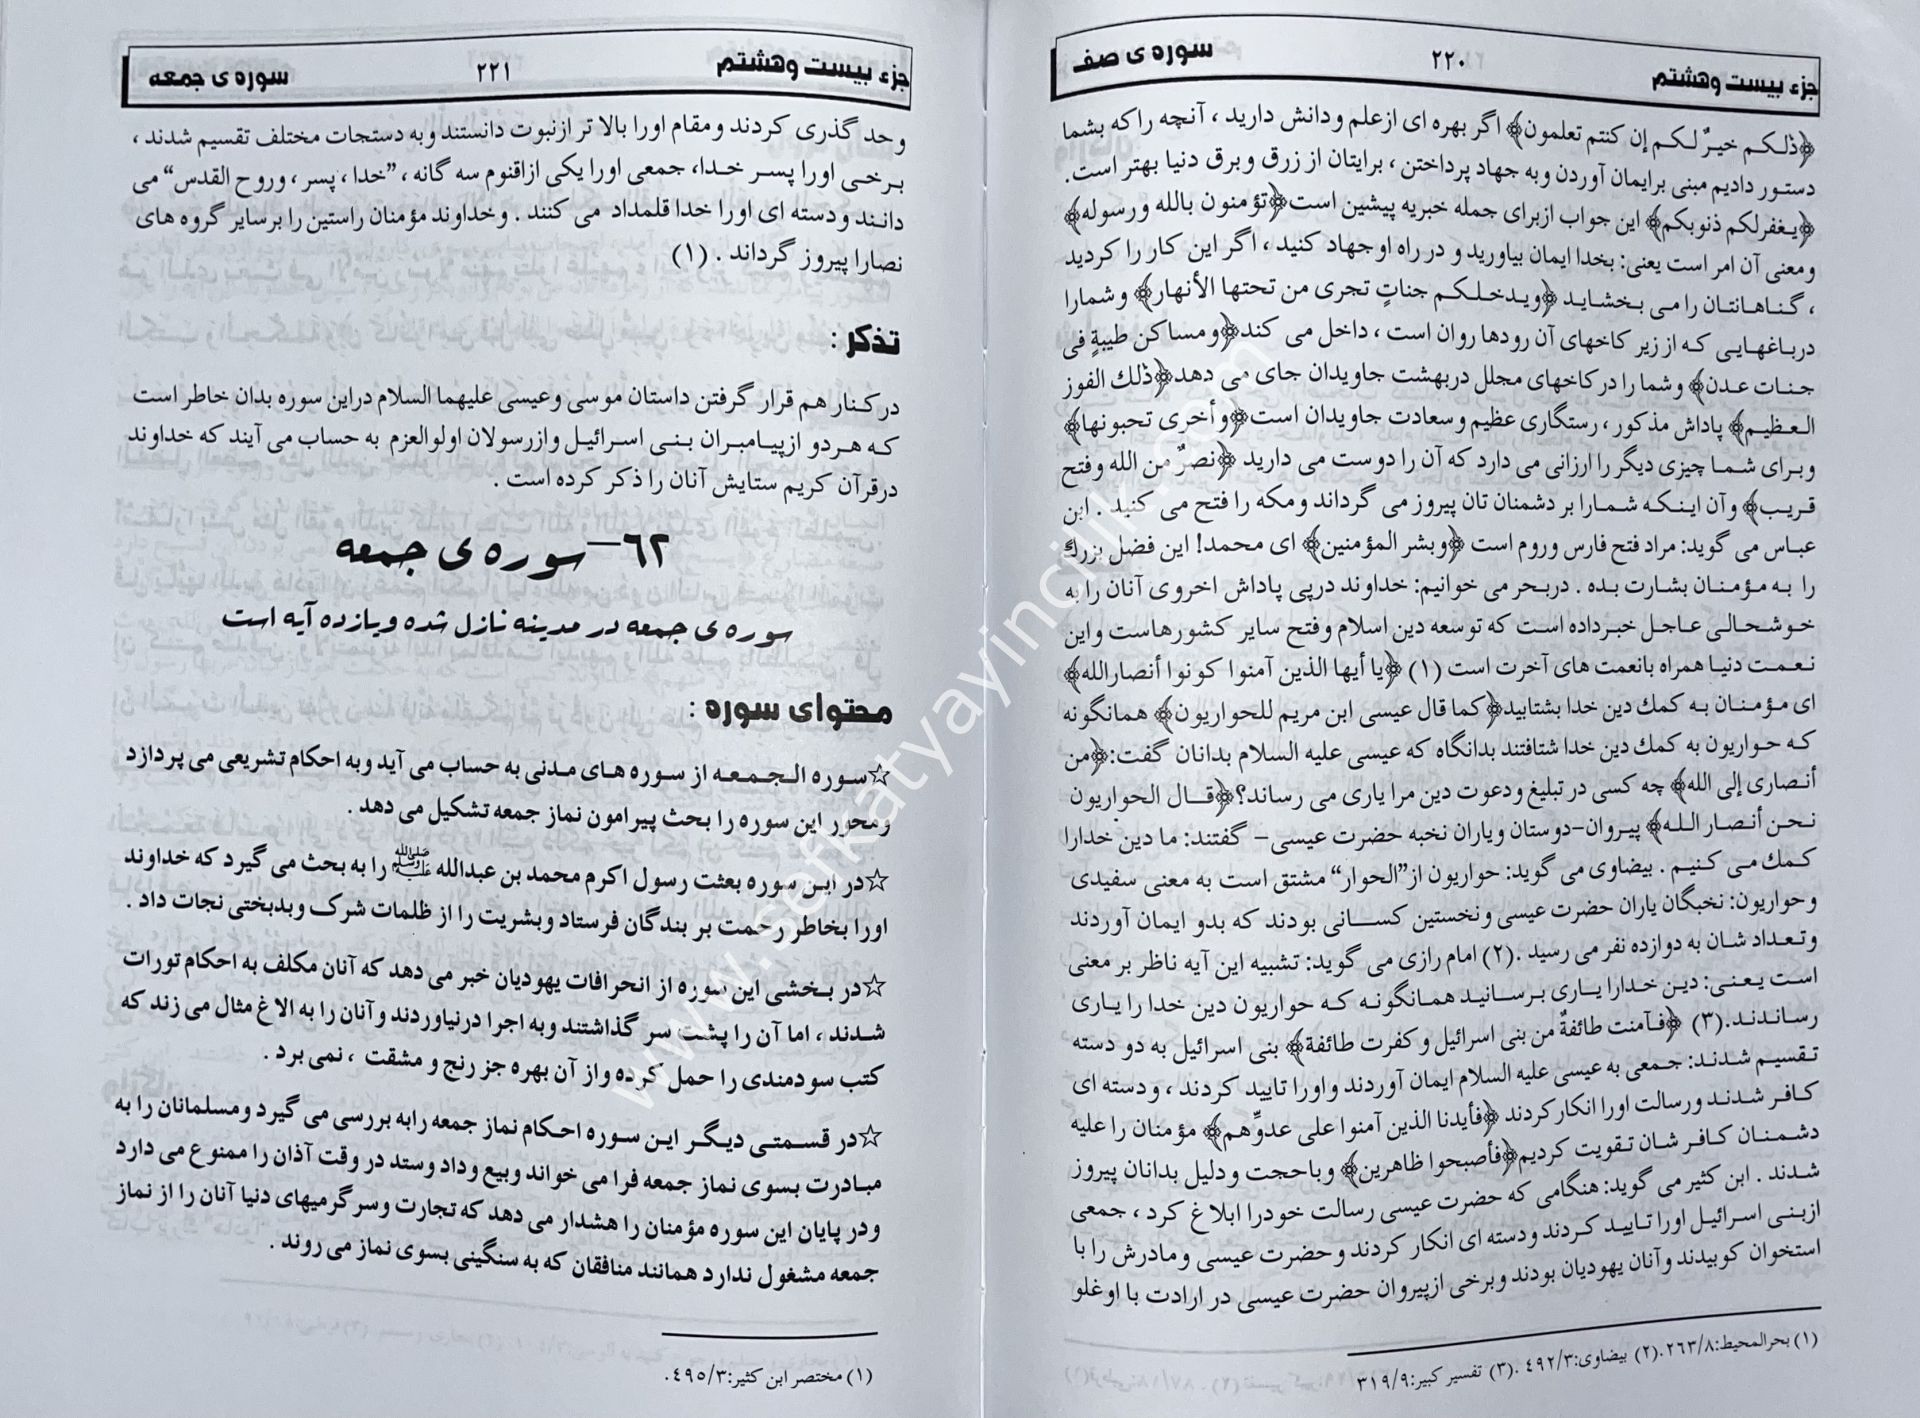 جزء بیست وهشتم ٢٢٠ سوره ی صف
﴿ذلـکـم خیـرٌ لـکـم إن کنتم تعلمون﴾ اگر بهره ای ازعلم ودانش دارید ، آنچه راکه بشما
دستـور دادیم مبنی برایمان آوردن وبه جهاد پرداختن ، برایتان از زرق وبرق دنیا بهتر است.
﴿یـغفرلکم ذنوبکم﴾ این جواب ازبرای جمله خبریه پیشین است﴿تؤمنون بالله ورسوله﴾
ومعنی آن امر است یعنی: بخدا ایمان بیاورید و در راه اوجهاد کنید ، اگر این کار را کردید
، گنـاهـانتان را می بـخشـایـد ﴿ویـدخـلـکـم جناتٍ تجری من تحتها الأنهار﴾ وشمارا
دربـاغهـایـی کـه از زیر کاخهای آن رودها روان است ، داخل می کند﴿ومساکن طیبةٍ فی
جنـات عـدن﴾ وشما را درکاخهای مجلل دربهشت جاویدان جای می دهد﴿ذلك الفوز
العـظیـم﴾ پاداش مذکور ، رستگاری عظیم وسعادت جاویدان است﴿وأخری تحبونها﴾
وبـرای شمـا چیزی دیگر را ارزانی می دارد که آن را دوست می دارید ﴿نصرٌ من الله وفتح
قریـب﴾ وآن اینـکـه شمـارا بر دشمنان تان پیروز می گرداند ومکه را فتح می کنید . ابن
عباس می گوید: مراد فتح فارس وروم است ﴿وبشر المؤمنین﴾ ای محمد! این فضل بزرك
را به مـؤمنـان بشارت بده . دربحر می خوانیم: خداوند درپی پاداش اخروی آنان را به
خـوشحـالـی عاجـل خبرداده اسـت که توسعه دین اسلام وفتح سایر کشورهاست واین
نعـمـت دنیـا همراه بانعمت های آخرت است (١) ﴿یا أیها الذین آمنوا کونوا أنصارالله﴾
ای مـؤمنـان بـه کمك دین خدا بشتابید﴿کما قال عیسی ابن مریم للحواریون﴾ همانگونه
کـه حـواریون به کمك دین خدا شتافتند بدانگاه که عیسی علیه السلام بدانان گفت:﴿من
أنصاری إلی الله﴾ چه کسی در تبلیغ ودعوت دین مرا یاری می رساند؟﴿قـال الحواریون
نحن أنصـار اللـه﴾ پیـروان-دوستان ویاران نخبه حضرت عیسی- گفتند: ما دین خدارا
کمك می کنیم . بیضاوی می گوید: حواریون از”الحوار“ مشتق است به معنی سفیدی
وحواریون: نخبگان یاران حضرت عیسی ونخستین کسـانی بودند که بدو ایمان آوردند
وتعـداد شان به دوازده نفر می رسید .(٢) امام رازی می گوید: تشبیه این آیه ناظر بر معنی
است یعنـی: دیـن خدارا یـاری بـرسـانید همـانگـونـه کـه حواریون دین خدا را یـاری
رساندنـد.(٣) ﴿فـآمنت طائفةٌ من بنی اسرائیل وکفرت طائفة﴾ بنی اسرائیل به دو دسته
تقسیم شدند: جمعی به عیسی علیه السلام ایمان آوردند واورا تایید کردند ، ودسته ای
کـافـر شـدنـد ورسالت اورا انکارکردند ﴿فأیدنا الذین آمنوا علی عدوِّهم﴾ مؤمنان را علیه
دشـمنـان کـافـر شان تـقویت کردیم﴿فأصبحوا ظاهرین﴾ وباحجت ودلیل بدانان پیروز
شدند . ابن کثیر می گوید: هنگامی که حضرت عیسی رسالت خودرا ابلاغ کرد ، جمعی
ازبنـی اسـرائیـل اورا تـاییـد کـردند ودسته ای انکار کردند وحضرت عیسی ومادرش را با
استخوان کوبیدند وآنان یهودیان بودند وبرخی ازپیروان حضرت عیسی در ارادت با اوغلو
(١) بحرالمحیط:٢٦٣/٨.(٢) بیضاوی:٤٩٢/٣ .(٣) تفسیر کبیر:٣١٩/٩
جزء بیست وهشتم ٢٢١ سوره ی جمعه
وحد گذری کردند ومقام اورا بالا تر ازنبوت دانستند وبه دستجات مختلف تقسیم شدند ،
بـرخـی اورا پسـر خـدا، جمعی اورا یکی ازاقنوم سه گانه ، ”خدا ، پسر ، وروح القدس“ می
دانـند ودسته ای اورا خدا قلمداد می کنند . وخداوند مؤمنان راستین را برسایر گروه های
نصارا پیروز گرداند . (١)
تذکر :
درکنـار هم قرار گرفتن داستان موسی وعیسی علیهما السلام دراین سوره بدان خاطر است
کـه هـردو ازپیـامبـران بـنـی اسـرائیـل وازرسولان اولوالعزم به حساب می آیند که خداوند
درقرآن کریم ستایش آنان را ذکر کرده است .
٦٢– سوره ی جمعه
سوره ی جمعه در مدینه نازل شده ویازده آیه است
محتوای سوره :
☆سـوره الـجـمـعـه از سـوره هـای مـدنی به حساب می آید وبه احکام تشریعی می پردازد
ومحور این سوره را بحث پیرامون نماز جمعه تشکیل می دهد .
☆در این سوره بعثت رسول اکرم محمد بن عبدالله ﷺ را به بحث می گیرد که خداوند
اورا بخاطر رحمت بر بندگان فرستاد وبشریت را از ظلمات شرک وبدبختی نجات داد .
☆در بـخشی این سوره از انحرافات یهودیان خبر می دهد که آنان مکلف به احکام تورات
شـدند ، اما آن را پشت سر گذاشتند وبه اجرا درنیاوردند وآنان را به الاغ مثال می زند که
کتب سودمندی را حمل کرده واز آن بهره جز رنج و مشقت ، نمی برد .
☆در قسمتـی دیگـر ایـن سـوره احـکام نماز جمعه رابه بررسی می گیرد ومسلمانان را به
مبـادرت بسوی نماز جمعه فرا می خواند وبیع وداد وستد در وقت آذان را ممنوع می دارد
ودر پایان این سوره مؤمنان را هشدار می دهد که تجارت وسرگرمیهای دنیا آنان را از نماز
جمعه مشغول ندارد همانند منافقان که به سنگینی بسوی نماز می روند .
(١) مختصر ابن کثیر:٤٩٥/٣.
www.sefkatyayincilik.com